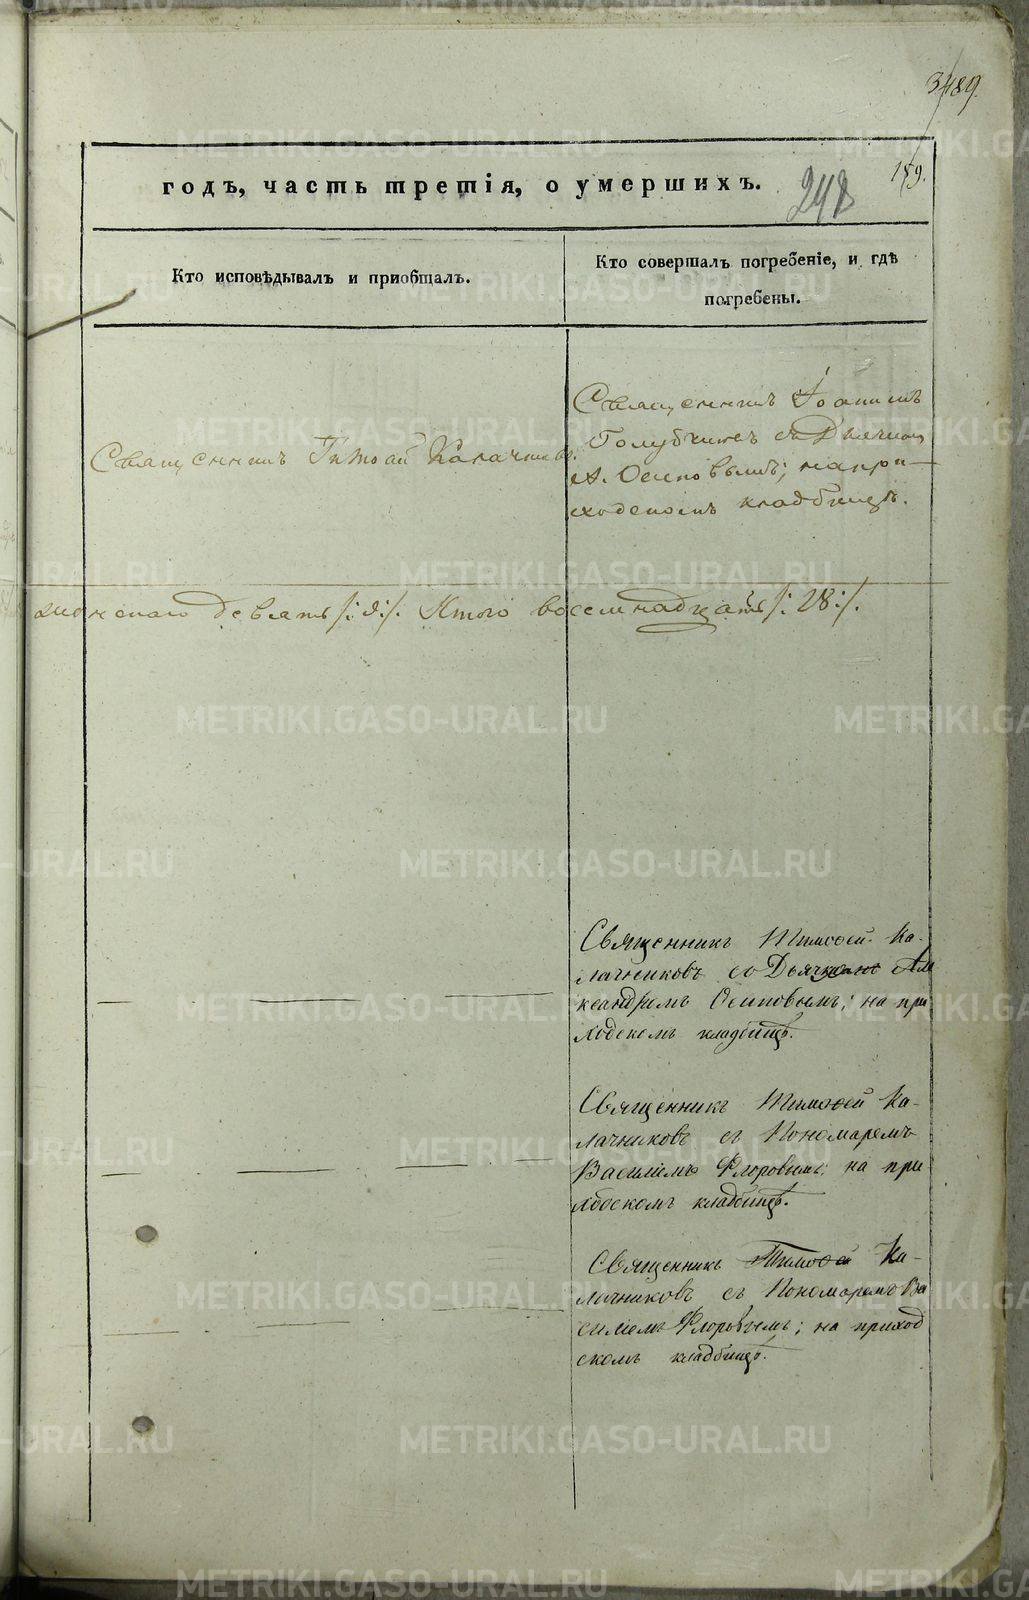 годъ, часть третія, о умершихъ.
248
159.
Кто исповѣдывалъ и пріобщалъ.
Кто совершалъ погребеніе, и гдѣ
погребены.
Священникъ Іоаннъ
Голубчиковъ съ Дьячкомъ
Священникъ Тимоѳей Калачниковъ.
А. Осиповымъ; на при-
ходскомъ кладбищѣ.
женскаго девять /:9:/. Итого восемнадцать /:18:/.
Священникъ Тимоѳей Ка-
лачниковъ со Дьячкомъ Але
ксандромъ Осиповымъ; на при
ходскомъ кладбищѣ.
Священникъ Тимоѳей Ка-
лачниковъ съ Пономаремъ
Василіемъ Флоровымъ; на при
ходскомъ кладбищѣ.
Священникъ Тимоѳей Ка-
лачниковъ съ Пономаремъ Ва
силіемъ Флоровымъ; на приход
скомъ кладбищѣ.
METRIKI.GASO-URAL.RU